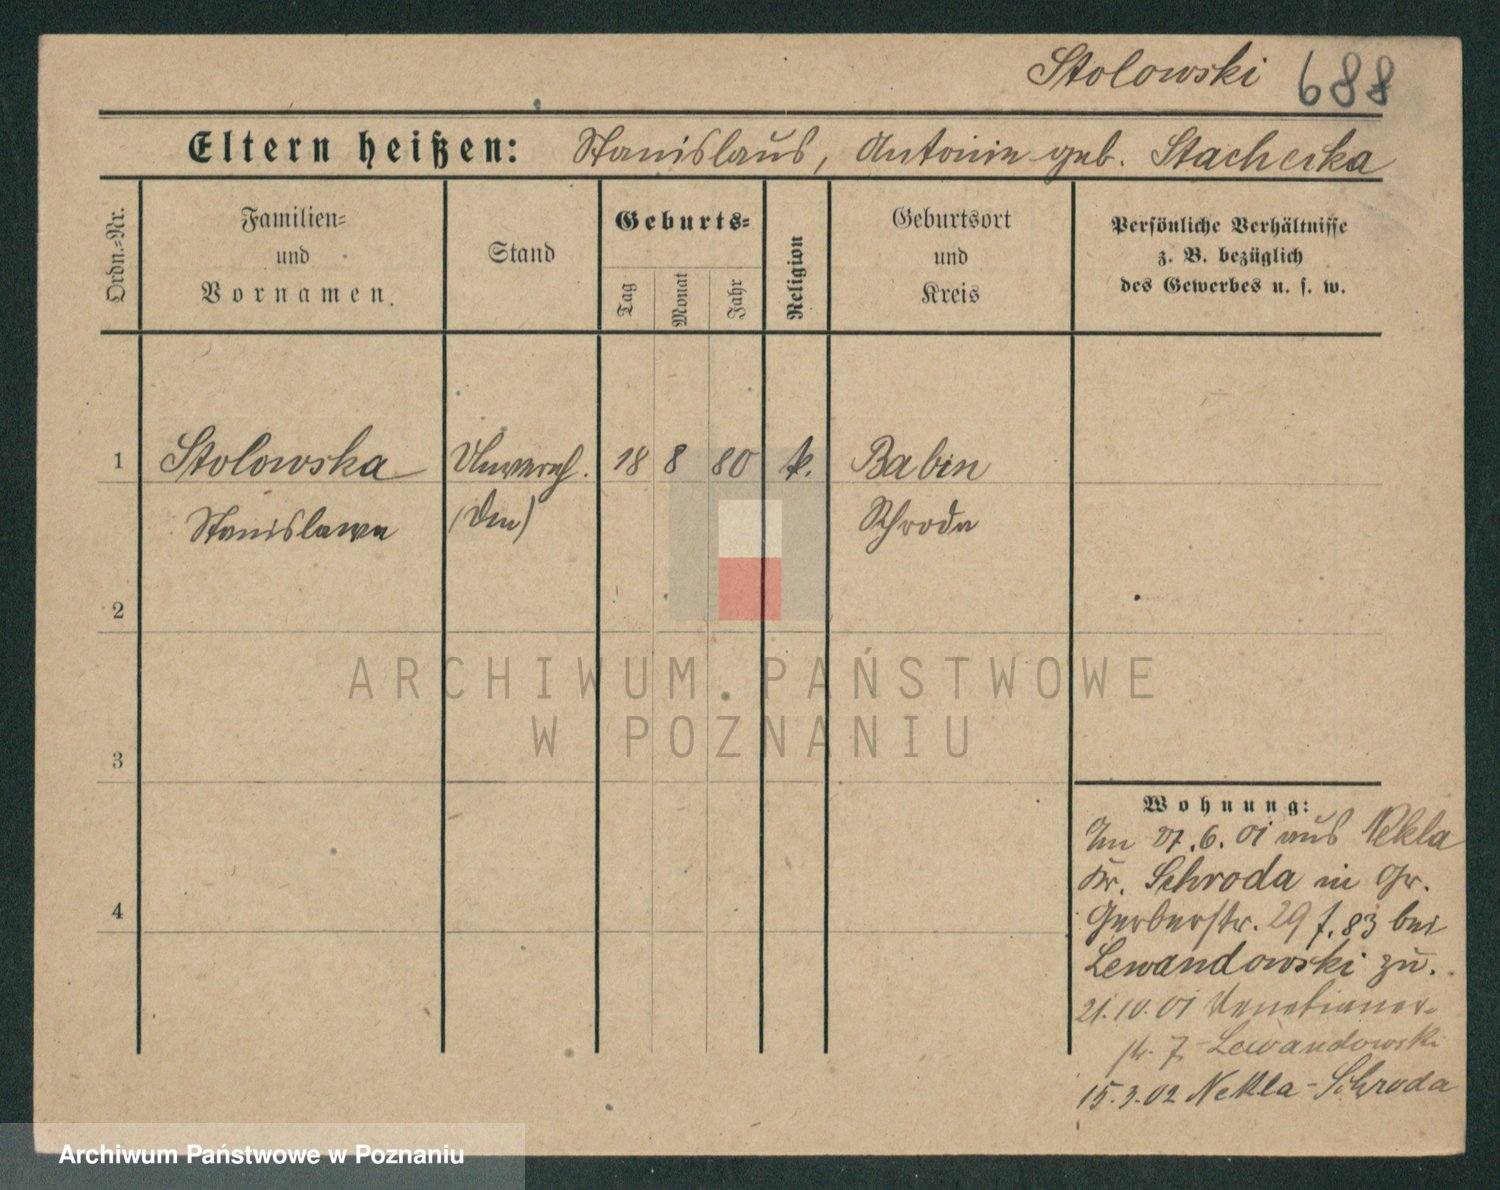 Stolowski 688
Eltern heißen: Stanislaus, Antonie geb. Stacherka
Ordn.-Nr.
Familien-
und
Vornamen.
Stand
Geburts-
Tag
Monat
Jahr
Religion
Geburtsort
und
Kreis
Persönliche Verhältnisse
z. B. bezüglich
des Gewerbes u. s. w.
1 Stolowska 18 8 80 k. Babin
Stanislawa Schroda
2
3
4
ARCHIWUM PAŃSTWOWE
W POZNANIU
Wohnung:
6. 01 aus Nekla
Kr. Schroda in Gr.
Gerberstr. 29 f. 83 bei
Lewandowski zu.
21.10.01 Venetianer-
str. 7 Lewandowski
15.3.02 Nekla-Schroda
Archiwum Państwowe w Poznaniu